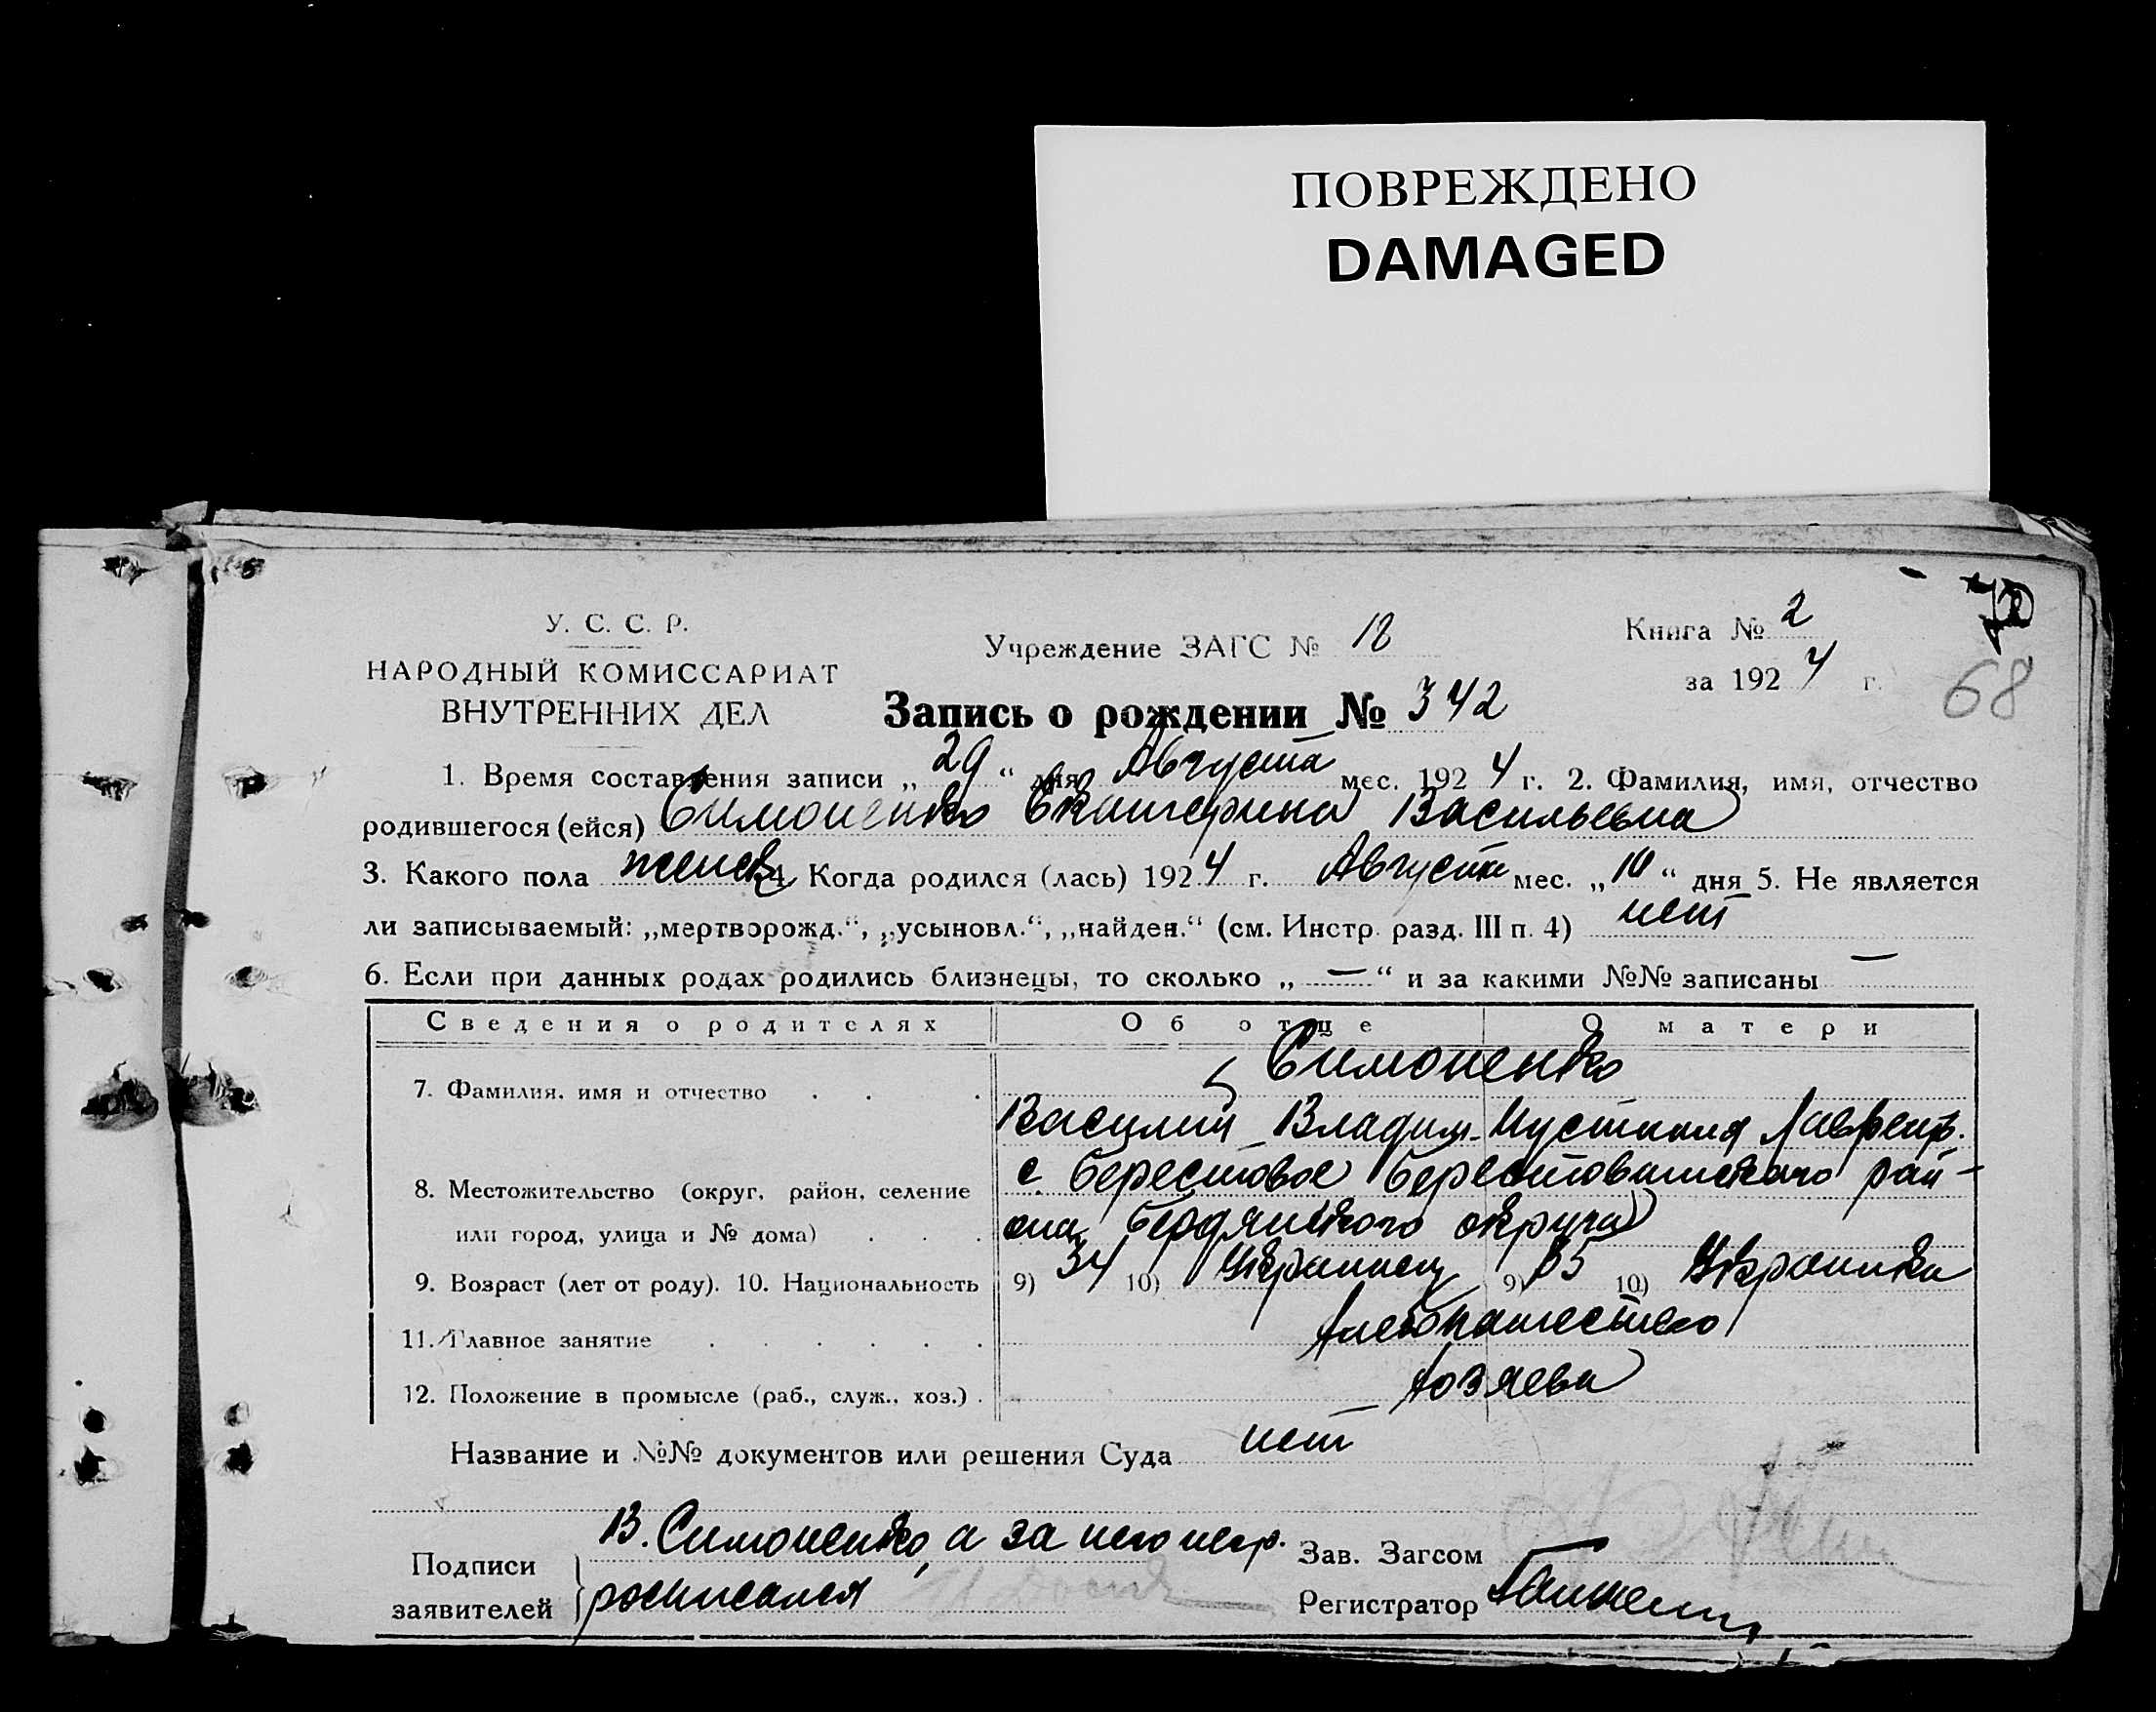 ПОВРЕЖДЕНО
DAMAGED
У. С. С. Р.
НАРОДНЫЙ КОМИССАРИАТ
ВНУТРЕННИХ ДЕЛ
Учреждение ЗАГС № 18
Книга № 2
за 1924 г.
68
Запись о рождении № 342
1. Время составления записи „29“ дня Августа мес. 1924 г. 2. Фамилия, имя, отчество
родившегося (ейся) Симоненко Екатерина Васильевна
3. Какого пола женск 4. Когда родился (лась) 1924 г. Августа мес. „10“ дня 5. Не является
ли записываемый: „мертворожд.“, „усыновл.“, „найден.“ (см. Инстр. разд. III п. 4) нет
6. Если при данных родах родились близнецы, то сколько „—“ и за какими №№ записаны —
Сведения о родителях Об отце О матери
7. Фамилия, имя и отчество . . . Симоненко
Василий Владим. Иустиния Лаврент.
8. Местожительство (округ, район, селение с. Берестовое Берестовитского рай-
или город, улица и № дома) . . . она, Бердянского округа
9. Возраст (лет от роду). 10. Национальность 9) 34 10) Украинец 9) 35 10) Украинка
11. Главное занятие . . . . . . Хлебопашество
12. Положение в промысле (раб., служ., хоз.) . хозяева
Название и №№ документов или решения Суда нет
Подписи заявителей
В. Симоненко, а за него негр.
росписался
Зав. Загсом
Регистратор